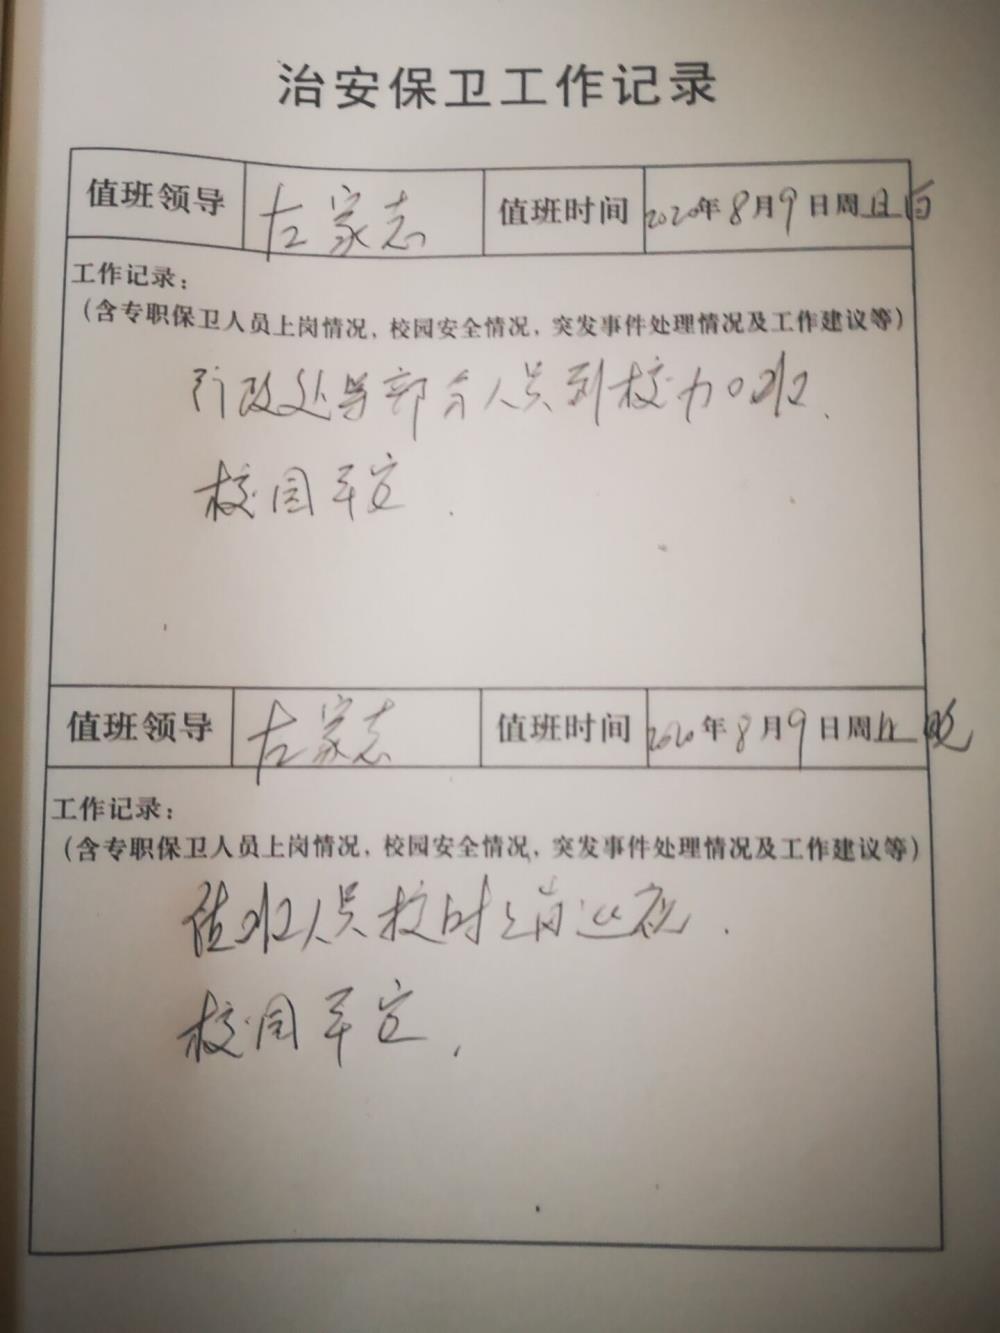 治安保卫工作记录
值班领导 左家志 值班时间 2020年8月9日周日白
工作记录：
（含专职保卫人员上岗情况，校园安全情况，突发事件处理情况及工作建议等）
政处与部分人员到校加班．
校园平安．
值班领导 左家志 值班时间 2020年8月9日周日晚
工作记录：
（含专职保卫人员上岗情况，校园安全情况，突发事件处理情况及工作建议等）
值班人员按时上岗巡夜．
校园平安．